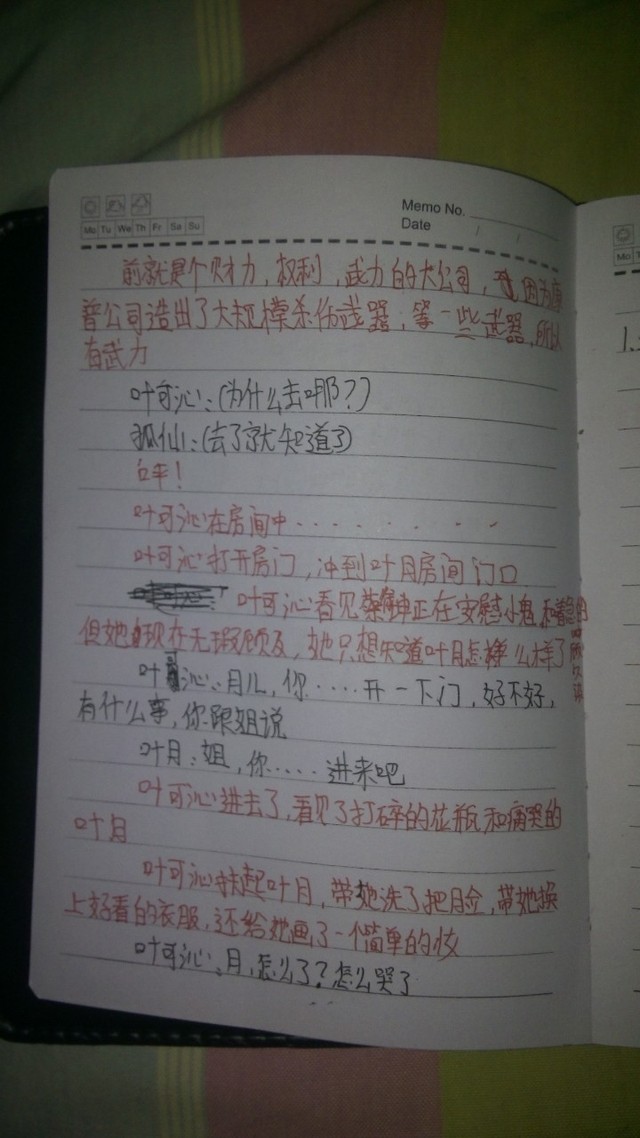 Memo No.
Date / /
Mo Tu We Th Fr Sa Su
前就是个财力,权利,武力的大公司,因为唐
普公司造出了大规模杀伤武器,等一些武器,所以
有武力
叶可沁:(为什么去哪?)
狐仙:(去了就知道了)
白羊!
叶可沁在房间中........
叶可沁打开房门,冲到叶月房间门口
叶可沁看见紫绅正在安慰小鬼和着急的
但她现在无瑕顾及,她只想知道叶月怎么样了
叶可沁:月儿,你.....开一下门,好不好,
有什么事,你跟姐说
叶月:姐,你.....进来吧
叶可沁进去了,看见了打碎的花瓶和痛哭的
叶月
叶可沁扶起叶月,带她洗了把脸,带她换
上好看的衣服,还给她画了一个简单的妆
叶可沁:月,怎么了?怎么哭了
Mo T
1.